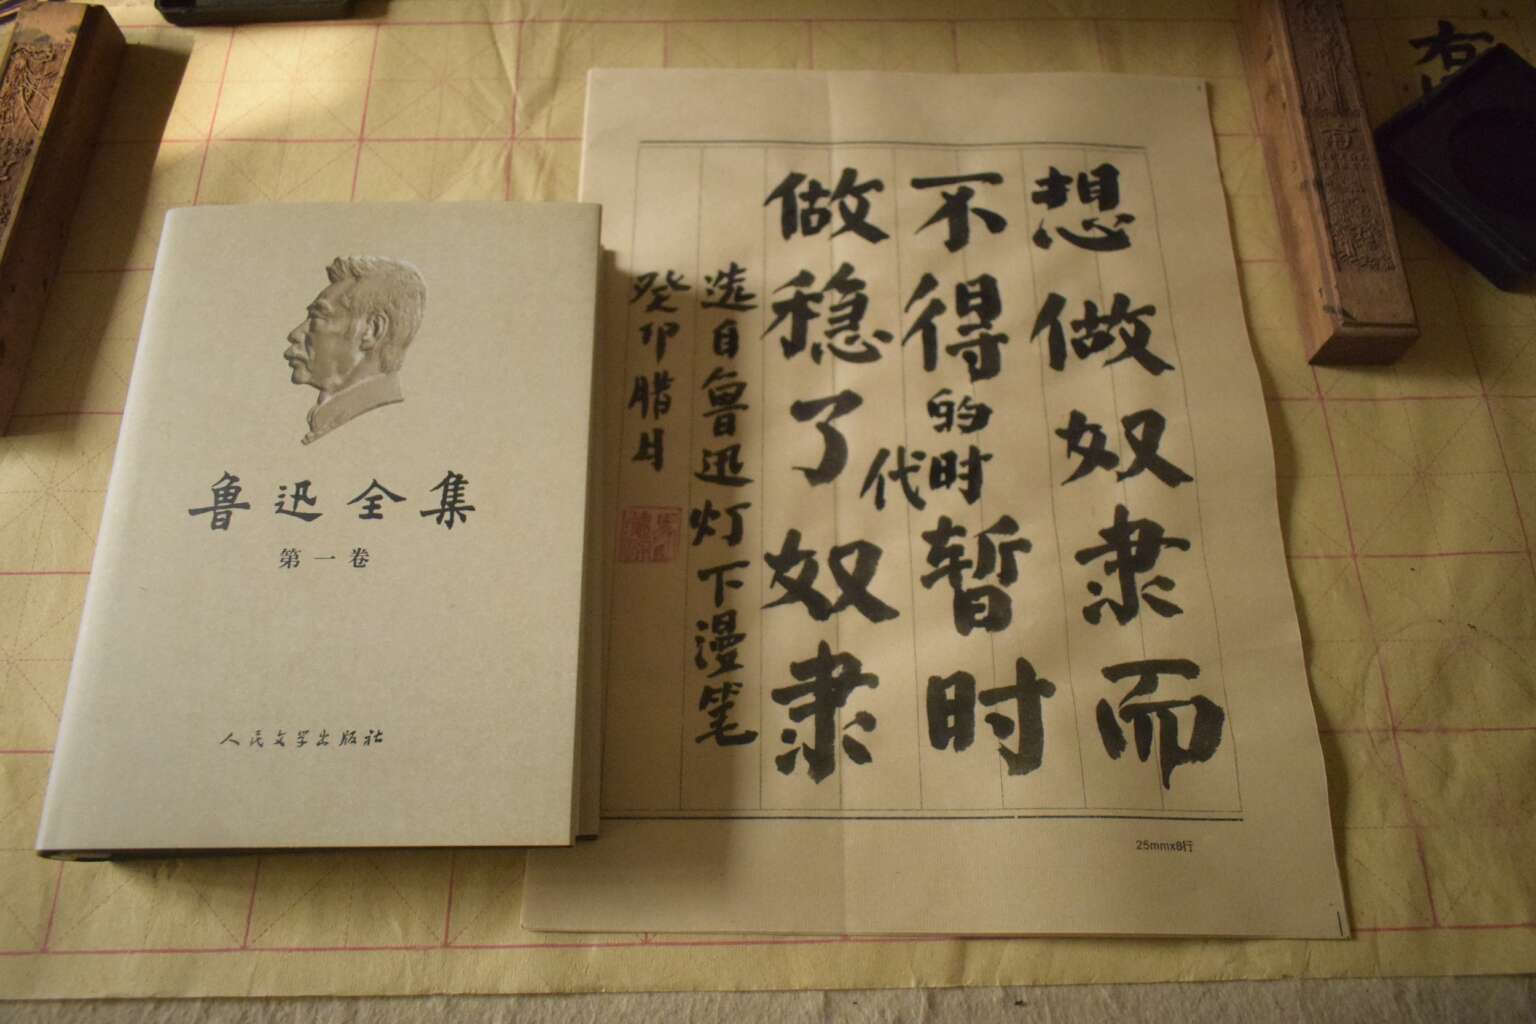 鲁迅全集
第一卷
人民文学出版社
想做奴隶而
不得的时代暂时
做稳了奴隶
选自鲁迅灯下漫笔
癸卯腊月
25mmx8行
右